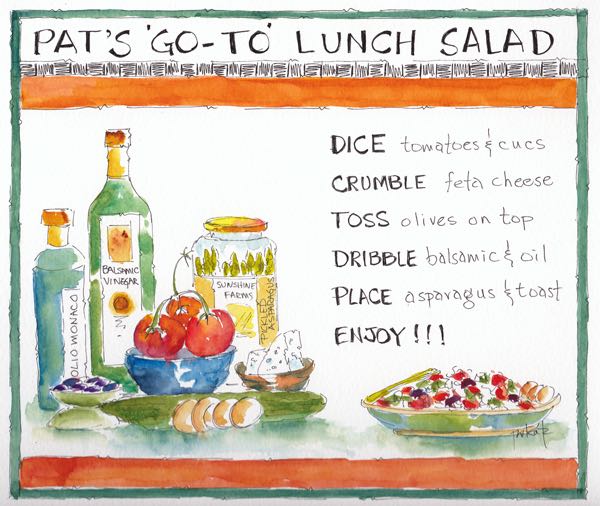 PAT'S 'GO-TO' LUNCH SALAD
DICE tomatoes & cucs
CRUMBLE feta cheese
TOSS olives on top
DRIBBLE balsamic & oil
PLACE asparagus & toast
ENJOY!!!
BALSAMIC
VINEGAR
OLIO MONACO
SUNSHINE
FARMS
PICKLED
ASPARAGUS